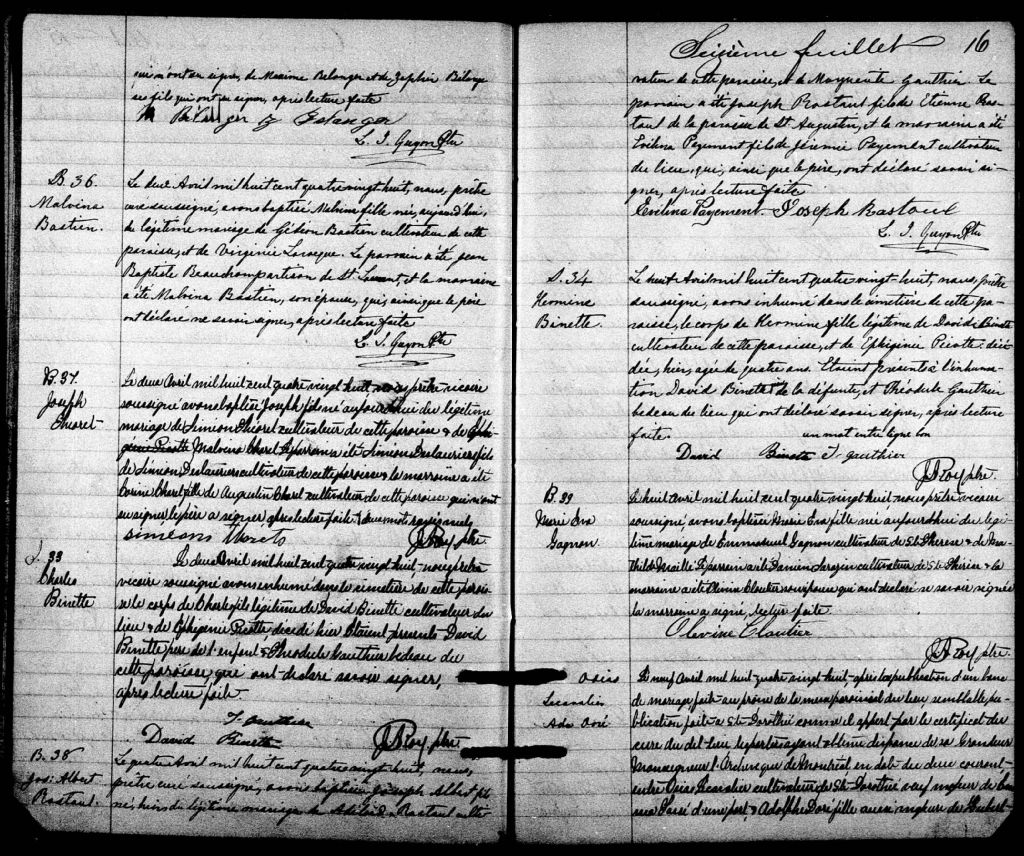 qui n'ont su signer, de Maxime Belanger et de Zephir Belanger
ses fils qui ont su signer, après lecture faite
M Bélanger Z Belanger
L. J. Guyon Ptre
B. 36.
Malvina
Bastien.
Le deux Avril mil huit cent quatre vingt huit, nous, prêtre
curé soussigné, avons baptisé Malvina fille née, aujourd'hui,
du légitime mariage de Gédeon Bastien cultivateur de cette
paroisse, et de Virginie Larocque. Le parrain a été Jean
Baptiste Beauchamp artisan de St. Laurent, et la marraine
a été Malvina Bastien, son épouse, qui, ainsi que le père
ont déclaré ne savoir signer, après lecture faite
L. J. Guyon Ptre
B. 37.
Joseph
Charet
Le deux Avril mil huit cent quatre vingt huit nous prêtre vicaire
soussigné avons baptisé Joseph fils né aujourd'hui du légitime
mariage de Simeon cultivateur de cette paroisse & de
Malvina le parrain a été Simeon Deslauriers fils
de Simeon Deslauriers cultivateur de cette paroisse & la marraine a été
fille de Augustin cultivateur de cette paroisse qui n'ont
su signer, le père a signé, après lecture faite
JRoy ptre.
S. 33
Charles
Binette
Le deux Avril mil huit cent quatre vingt huit, nous prêtre
vicaire soussigné avons inhumé dans le cimetière de cette parois-
se le corps de Charles fils légitime de David Binette cultivateur du
lieu & de Ephigenie Picotte décédé hier Etaient présents David
Binette père de l'enfant & Théodule Gauthier bedeau de
cette paroisse qui ont déclaré savoir signer,
après lecture faite
T. Gauthier
David Binette JRoy ptre.
B. 38
Jos: Albert
Rastaul.
Le quatre Avril mil huit cent quatre vingt huit, nous,
prêtre curé soussigné, avons baptisé Joseph Albert fils
né, hier, du légitime mariage de Rastaul culti-
Seizième feuillet 16
vateur de cette paroisse, et de Marguerite Gauthier. Le
parrain a été Joseph Rastaul fils de Etienne Ras-
taul de la paroisse de St Augustin, et la marraine a été
Evélina Payement fille de Jérémie Payement cultivateur
du lieu, qui, ainsi que le père, ont déclaré savoir si-
gner, après lecture faite
Evélina Payement. Joseph Rastoul
L. J. Guyon Ptre
S. 34
Hermine
Binette.
Le huit Avril mil huit cent quatre vingt-huit, nous, prêtre
soussigné, avons inhumé dans le cimetière de cette pa-
roisse, le corps de Hermine fille légitime de David Binette
cultivateur de cette paroisse, et de Ephigénie Picotte: décé-
dée, hier, agée de quatre ans. Etaient présents à l'inhuma-
tion David Binette de la défunte, et Théodule Gauthier
bedeau du lieu qui ont déclaré savoir signer, après lecture
faite. un mot entre ligne bon
David Binette T. Gauthier
JRoy ptre.
B. 39
Marie Eva
Gagnon.
Le huit Avril mil huit cent quatre vingt huit, nous prêtre vicaire
soussigné, avons baptisé Marie Eva fille née aujourd'hui du légi-
time mariage de Emmanuel Gagnon cultivateur de Ste Therese & de Ma-
thilde Maillé Le parrain a été Damien Sarazin cultivateur de Ste Thérèse & la
marraine a été Cloutier son épouse qui ont déclaré ne savoir signer
la marraine a signé, lecture faite.
Olevine Cloutier
JRoy ptre.
Osias
Lecavalier
Ada Doré
Le neuf Avril mil huit cent quatre vingt huit après la publication d'un banc
de mariage faite au prône de la messe paroissiale du lieu semblable pu-
blication faite à Ste Dorothée comme il appert par le certificat du
curé du dit lieu les parties ayant obtenu dispense de sa Grandeur
Monseigneur l'Archevêque de Montréal en date du deux courant
entre Osias Lecavalier cultivateur de Ste Dorothée
d'une part, & Doré fille aussi mineure de Hubert